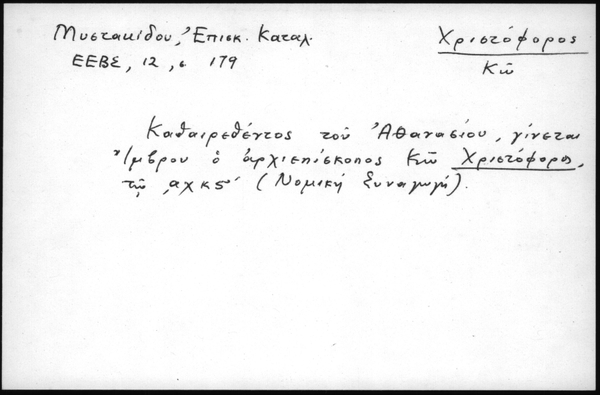 Μυστακίδου, Ἐπισκ. Καταλ.
ΕΕΒΣ, 12, σ 179
Χριστόφορος
Κῶ
Καθαιρεθέντος τοῦ Ἀθανασίου, γίνεται
Ἴμβρου ὁ ἀρχιεπίσκοπος Κῶ Χριστόφορος,
τῷ ͵αχκϛ´ (Νομική Συναγωγή).